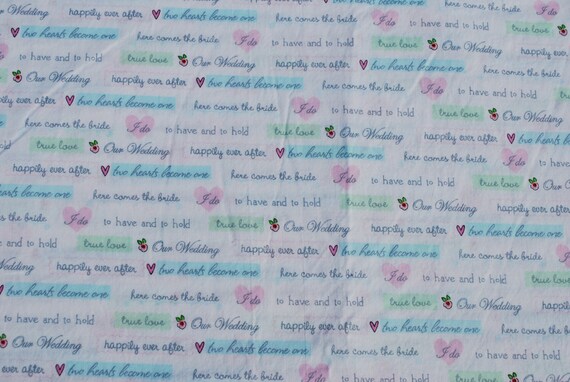 Our Wedding happily ever after two hearts become one here comes the bride I do to have and to hold true love
two hearts become one here comes the bride I do to have and to hold true love Our Wedding happily ever after
to have and to hold true love Our Wedding happily ever after two hearts become one here comes the bride
Our Wedding happily ever after two hearts become one here comes the bride I do to have and to hold
happily ever after two hearts become one here comes the bride I do to have and to hold true love Our Wedding
here comes the bride I do to have and to hold true love Our Wedding happily ever after two hearts become
true love Our Wedding happily ever after two hearts become one here comes the bride I do to have
happily ever after two hearts become one here comes the bride I do to have and to hold true love Our
two hearts become one here comes the bride I do to have and to hold true love Our Wedding happily ever after
I do to have and to hold true love Our Wedding happily ever after two hearts become one
true love Our Wedding happily ever after two hearts become one here comes the bride
Wedding happily ever after two hearts become one here comes the bride I do to have and to hold true
two hearts become one here comes the bride I do to have and to hold true love Our Wedding
to have and to hold true love Our Wedding happily ever after two hearts become one here comes the
Our Wedding happily ever after two hearts become one here comes the bride I do to have and to hold
ever after two hearts become one here comes the bride I do to have and to hold true love